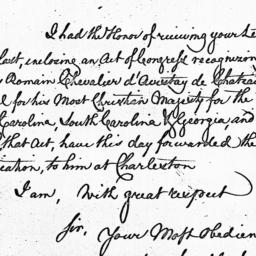 I had the Honor of receiving your Le
last, inclosing an Act of Congress recognizing
Romain Chevalier d'Avistay de Chateau
l for his Most Christian Majesty for the
Carolina, South Carolina & Georgia, and
that Act, have this day forwarded the
ication, to him at Charleston
I am, With great respect
Sir,
Your Most Obedien